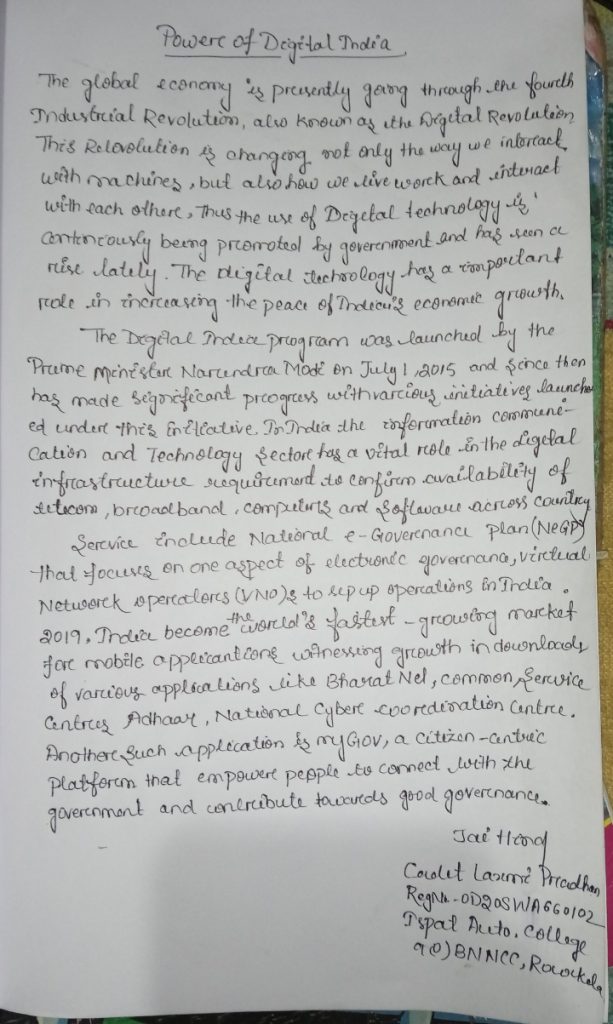 Powere of Digital India
The global economy is presently going through the fourth
Industrial Revolution, also known as the Digital Revolution
This Relovolution is changing not only the way we intereack
with machines, but also how we live worck and interact
with each othere, Thus the use of Degetal technology is
continiously being promoted by goverenment and has seen a
rise lately. The digital technology has a important
role in increasing the peace of Indian's economic growth.
The Degital India program was launched by the
Prime Minister Narendra Modi on July 1, 2015 and since then
has made significant progress with various initiatives launch
ed undere this initiative. In India the information communi-
cation and Technology Sectore has a vital role in the digital
infrastructure requirement to confirm availability of
telecom, broadband, computers and software across country
Service include National e-Governance Plan (NeGP)
that focuses on one aspect of electronic governance, virtual
Netwoeck operatores (VNO)s to up operations in India.
2019, India become the world's fastest-growing market
fore mobile applicantions witnessing growth in downloads
of various applications like Bharat Net, common Service
Centres Adhaar, National Cybere coordination Centre.
Anothere such application is myGov, a citizen-centric
platform that empowere people to connect with the
government and contribute towards good governance.
Jai Hind
Laxmi Pradhan
Reg No - OD20SWA660102
Ispat Auto. College
9(O)BNNCC, Rourkela